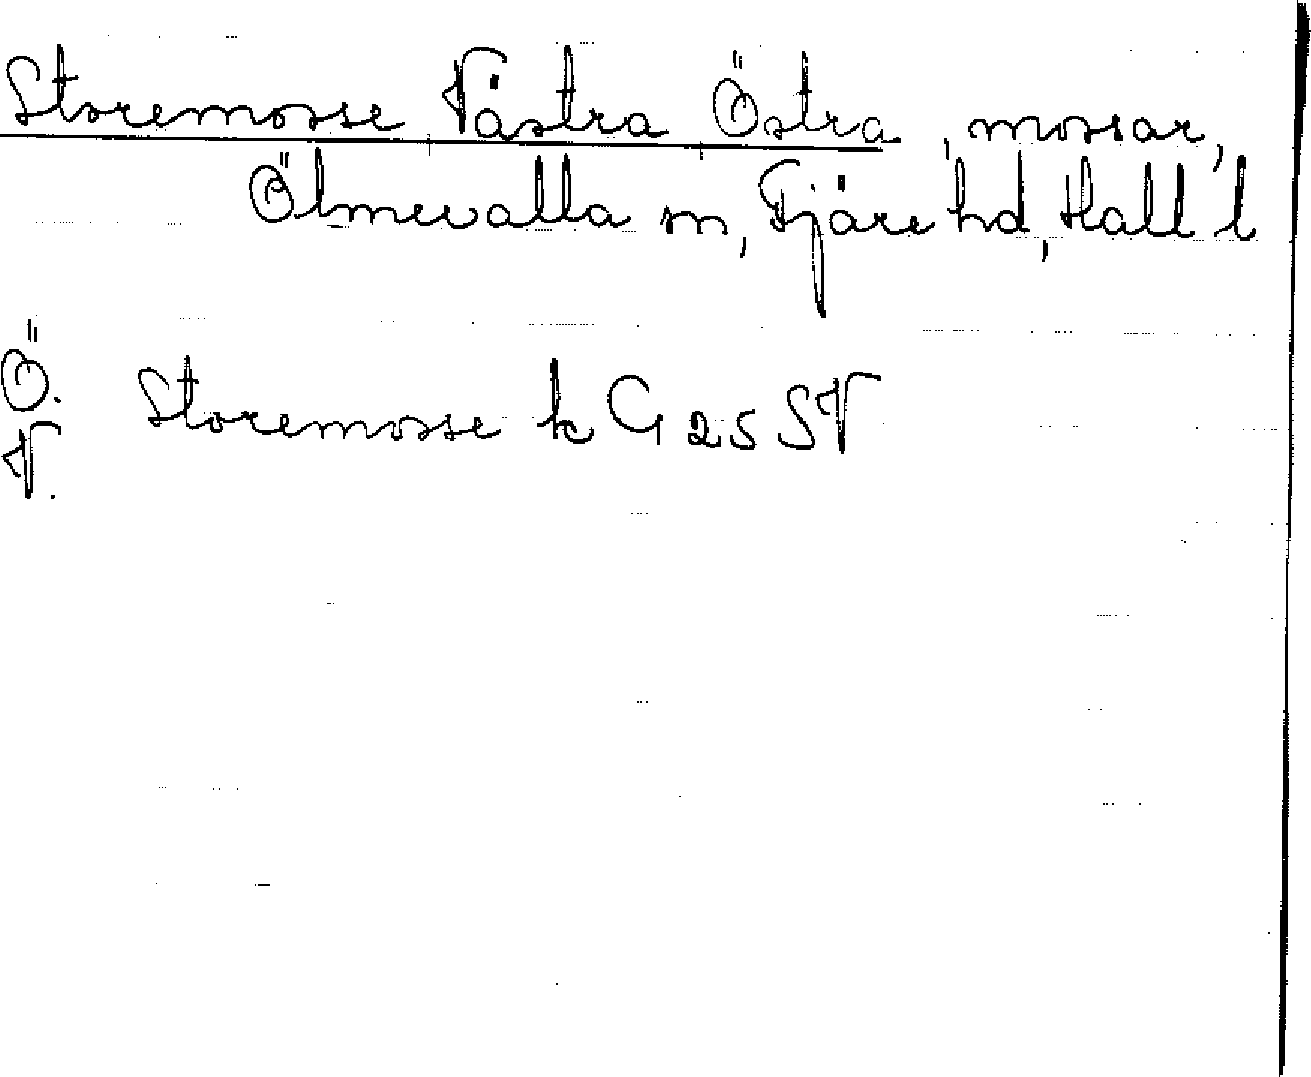 Storemosse Västra Östra, mossar,
Ölmevalla sn, Fjäre hd, Hall l
Ö. Storemosse k G 25 SV
V.